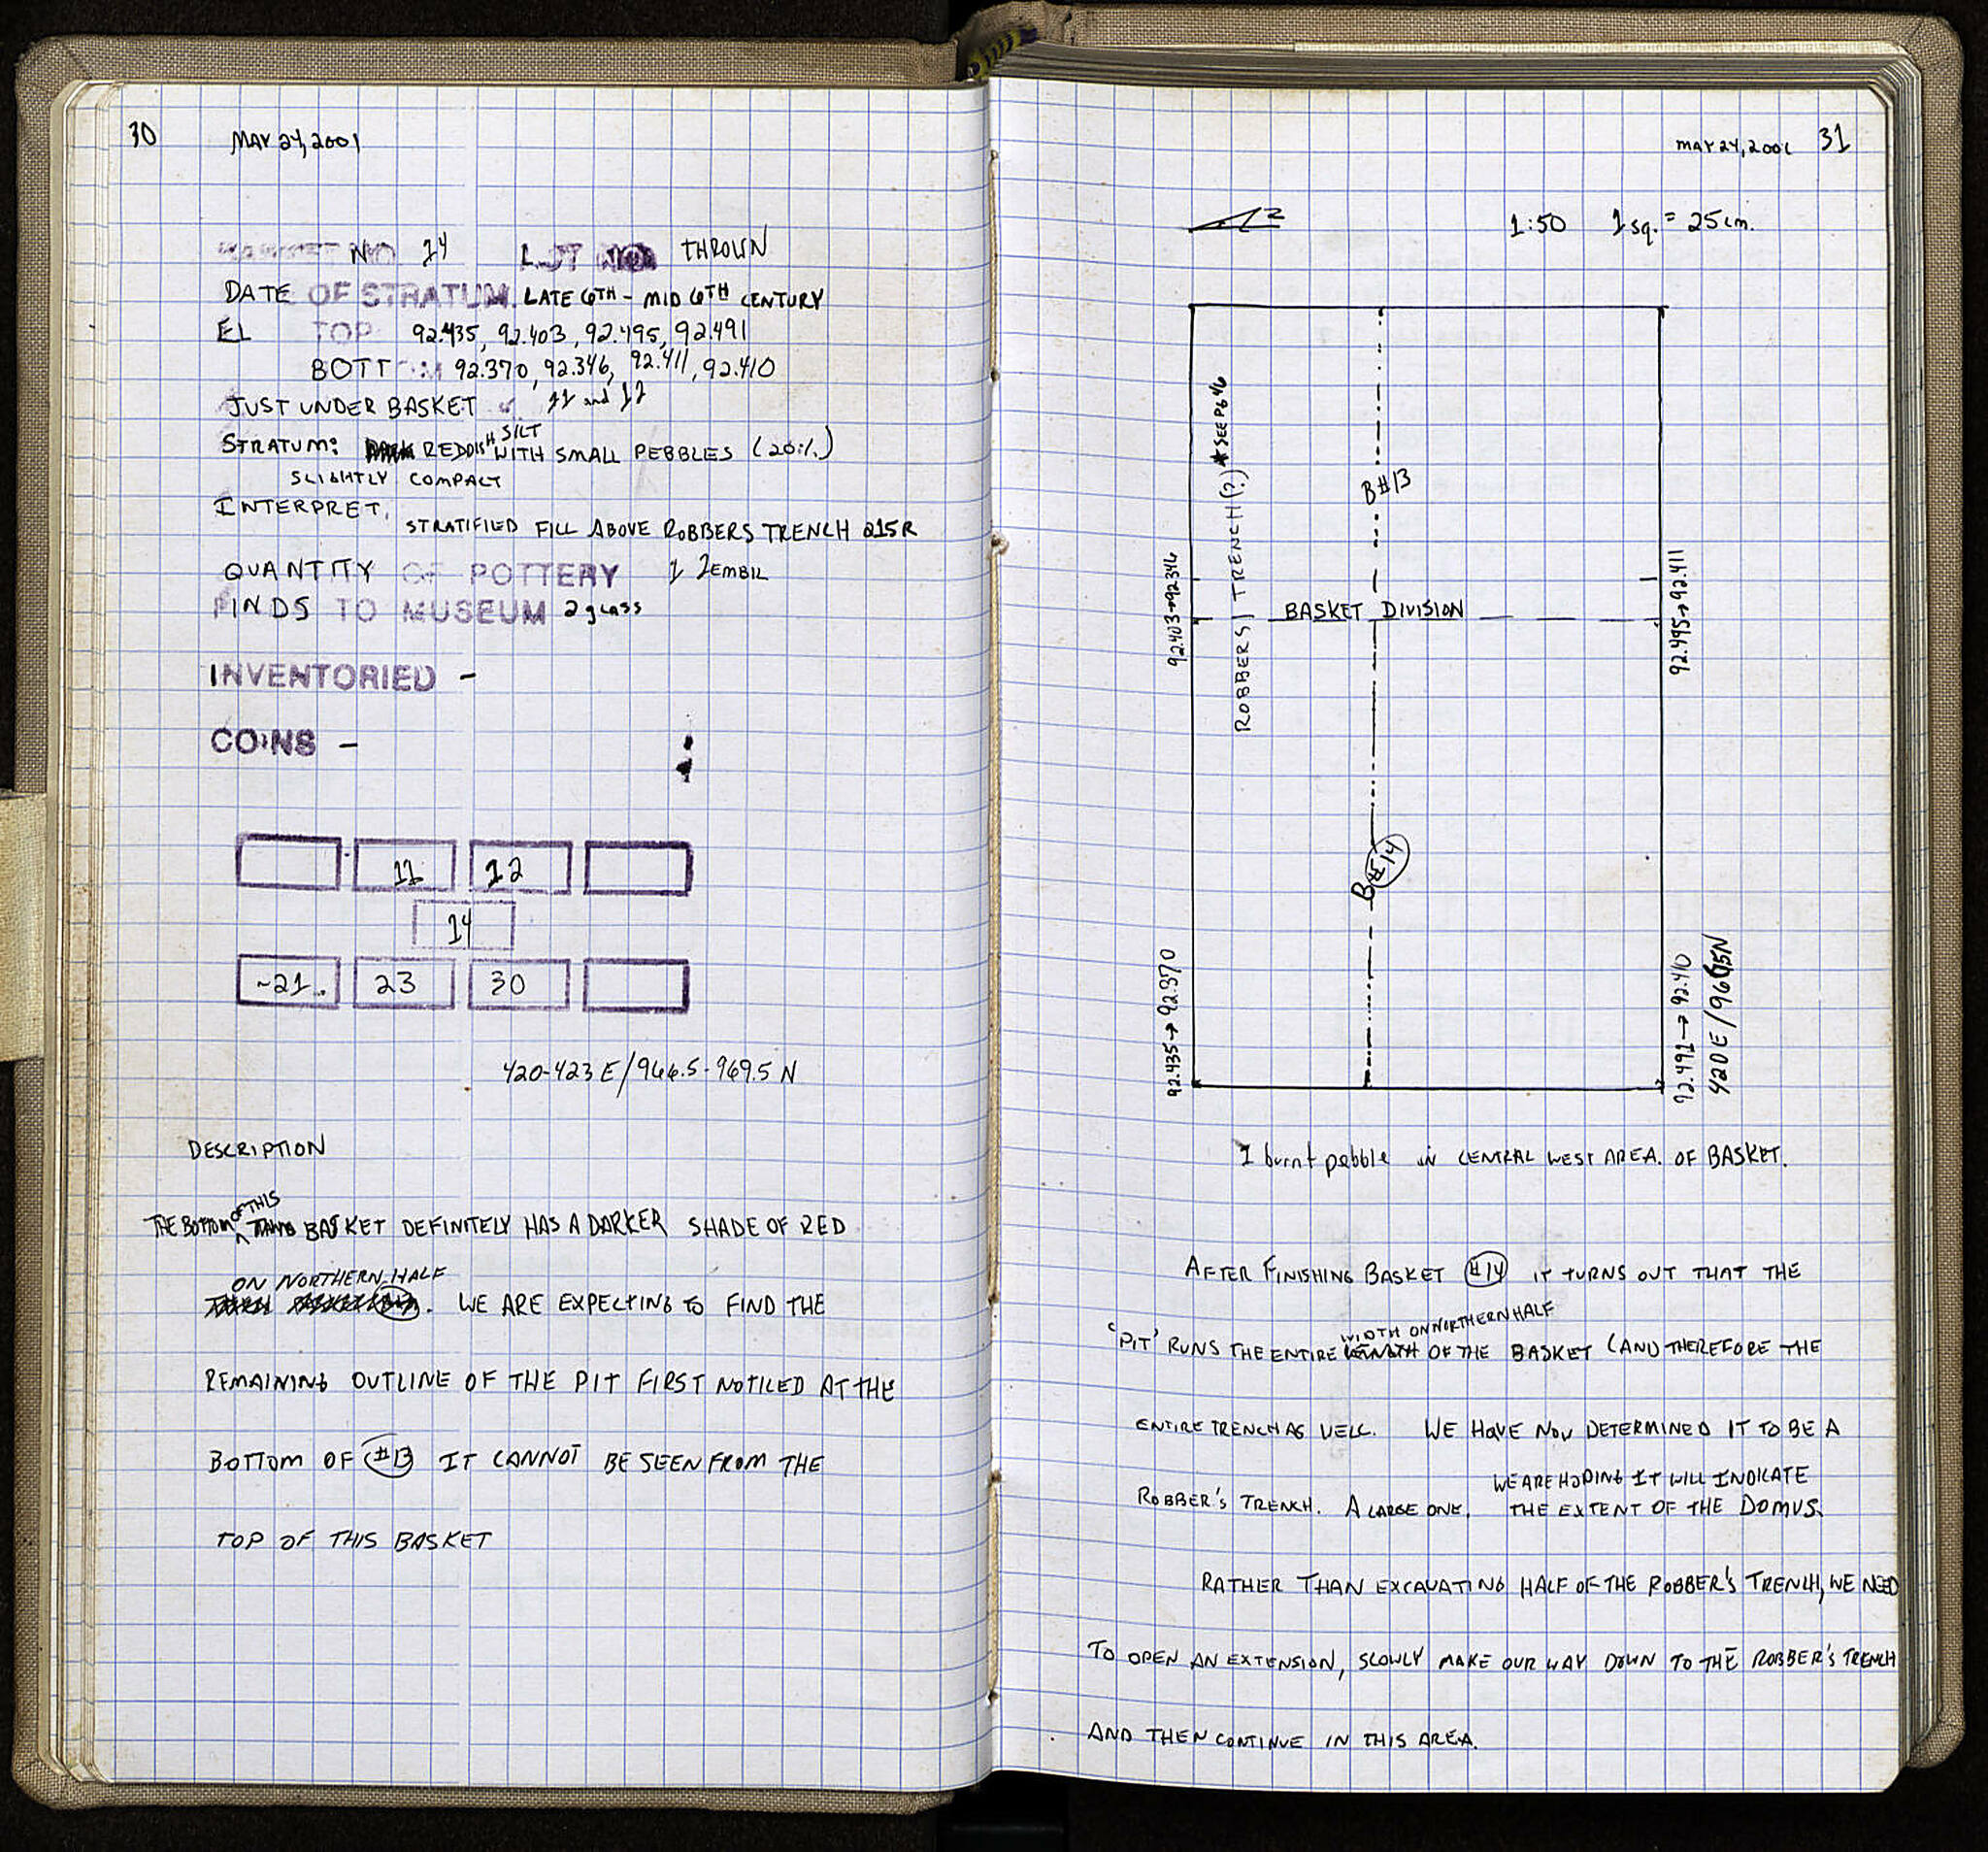 30 MAY 24, 2001
BASKET NO 14 LOT NO THROWN
DATE OF STRATUM LATE 6TH - MID 6TH CENTURY
EL TOP 92.435, 92.403, 92.495, 92.491
BOTTOM: 92.370, 92.346, 92.411, 92.410
JUST UNDER BASKET 11 and 12
STRATUM: REDDISH SILT WITH SMALL PEBBLES (20%)
SLIGHTLY COMPACT
INTERPRET. STRATIFIED FILL ABOVE ROBBERS TRENCH 215R
QUANTITY OF POTTERY 1 ZEMBIL
FINDS TO MUSEUM 2 glass
INVENTORIED -
COINS -
11 12
14
~21 23 30
420-423 E/966.5-969.5 N
DESCRIPTION
THE BOTTOM OF THIS BASKET DEFINITELY HAS A DARKER SHADE OF RED
ON NORTHERN HALF. WE ARE EXPECTING TO FIND THE
REMAINING OUTLINE OF THE PIT FIRST NOTICED AT THE
BOTTOM OF #13 IT CANNOT BE SEEN FROM THE
TOP OF THIS BASKET
MAY 24, 2001 31
1:50 1 sq. = 25cm.
ROBBERS TRENCH (?) *SEE PG 46
B#13
92.403→92.346
92.495→92.411
BASKET DIVISION
B#14
92.435→92.370
92.491→92.410
420E/966.5N
1 burnt pebble IN CENTRAL WEST AREA. OF BASKET.
AFTER FINISHING BASKET #14 IT TURNS OUT THAT THE
'PIT' RUNS THE ENTIRE WIDTH ON NORTHERN HALF OF THE BASKET (AND THEREFORE THE
ENTIRE TRENCH AS WELL. WE HAVE NOW DETERMINED IT TO BE A
ROBBER'S TRENCH. A LARGE ONE. WE ARE HOPING IT WILL INDICATE THE EXTENT OF THE DOMUS.
RATHER THAN EXCAVATING HALF OF THE ROBBER'S TRENCH, WE NEED
TO OPEN AN EXTENSION, SLOWLY MAKE OUR WAY DOWN TO THE ROBBER'S TRENCH
AND THEN CONTINUE IN THIS AREA.